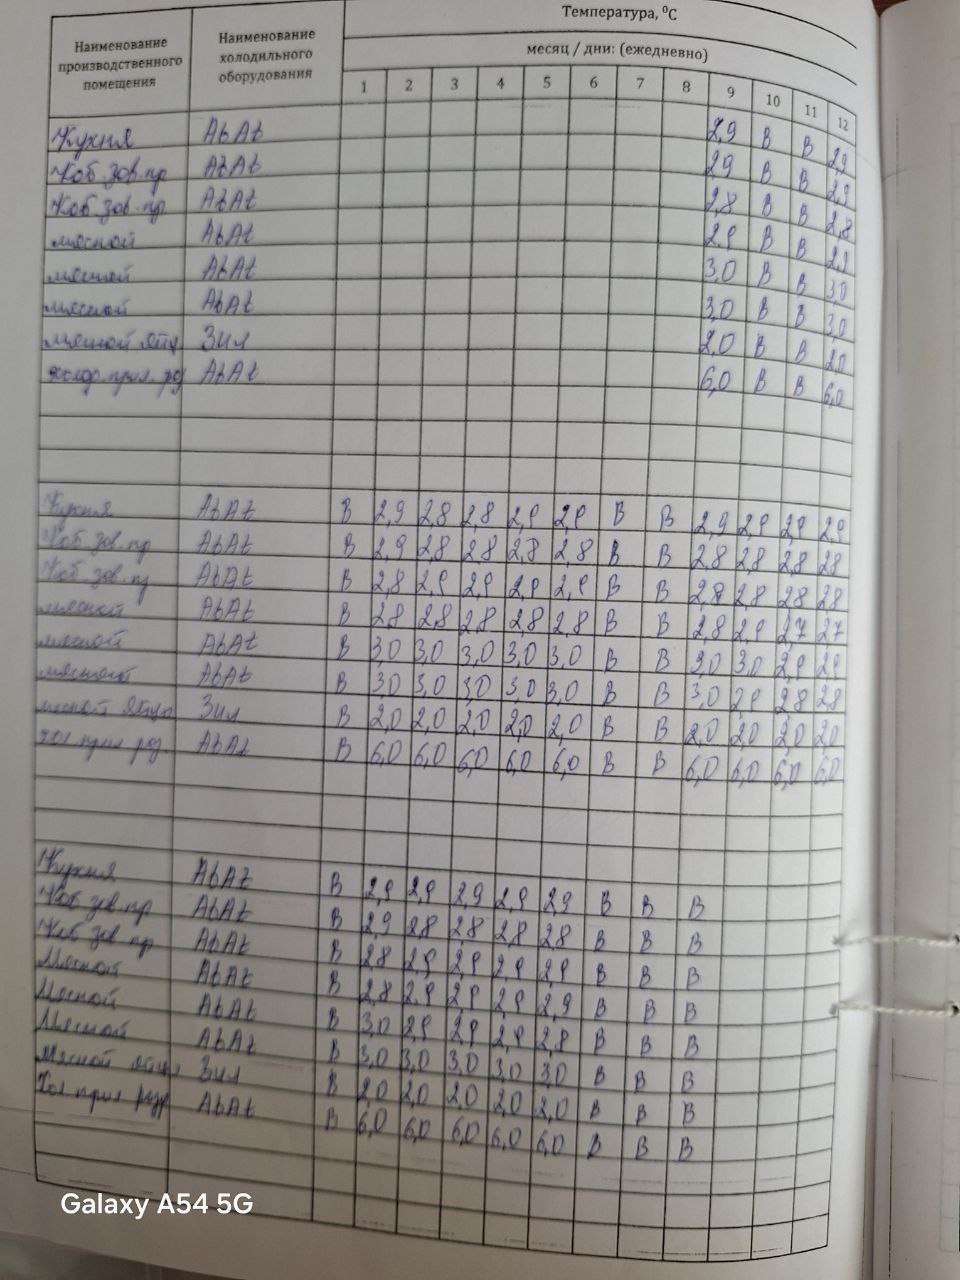 Температура, ⁰С
Наименование производственного помещения
Наименование холодильного оборудования
месяц / дни: (ежедневно)
1 2 3 4 5 6 7 8 9 10 11 12
Кухня Abat 2,9 В В 2,9
Хоб. зав. пр Abat 2,9 В В 2,9
Хоб. зав. пр. Abat 2,8 В В 2,8
мясной Abat 2,9 В В 2,9
мясной Abat 3,0 В В 3,0
мясной Abat 3,0 В В 3,0
мясной яйцо Зил 2,0 В В 2,0
Abat 6,0 В В 6,0
Кухня Abat В 2,9 2,8 2,8 2,9 2,9 В В 2,9 2,9 2,9 2,9
Хоб зав. пр Abat В 2,9 2,8 2,8 2,8 2,8 В В 2,8 2,8 2,8 2,8
Хоб. зав. пр Abat В 2,8 2,9 2,9 2,9 2,9 В В 2,8 2,8 2,8 2,8
мясной Abat В 2,8 2,8 2,8 2,8 2,8 В В 2,8 2,9 2,7 2,7
мясной Abat В 3,0 3,0 3,0 3,0 3,0 В В 3,0 3,0 2,9 2,9
мясной Abat В 3,0 3,0 3,0 3,0 3,0 В В 3,0 2,9 2,8 2,8
Зил В 2,0 2,0 2,0 2,0 2,0 В В 2,0 2,0 2,0 2,0
Abat В 6,0 6,0 6,0 6,0 6,0 В В 6,0 6,0 6,0 6,0
Кухня Abat В 2,9 2,9 2,9 2,9 2,9 В В В
Хоб зав. пр Abat В 2,9 2,8 2,8 2,8 2,8 В В В
Хоб зав. пр Abat В 2,8 2,9 2,9 2,9 2,9 В В В
Мясной Abat В 2,8 2,9 2,9 2,9 2,9 В В В
Мясной Abat В 3,0 2,9 2,9 2,9 2,8 В В В
Мясной Abat В 3,0 3,0 3,0 3,0 3,0 В В В
Мясной яйцо Зил В 2,0 2,0 2,0 2,0 2,0 В В В
Abat В 6,0 6,0 6,0 6,0 6,0 В В В
Galaxy A54 5G